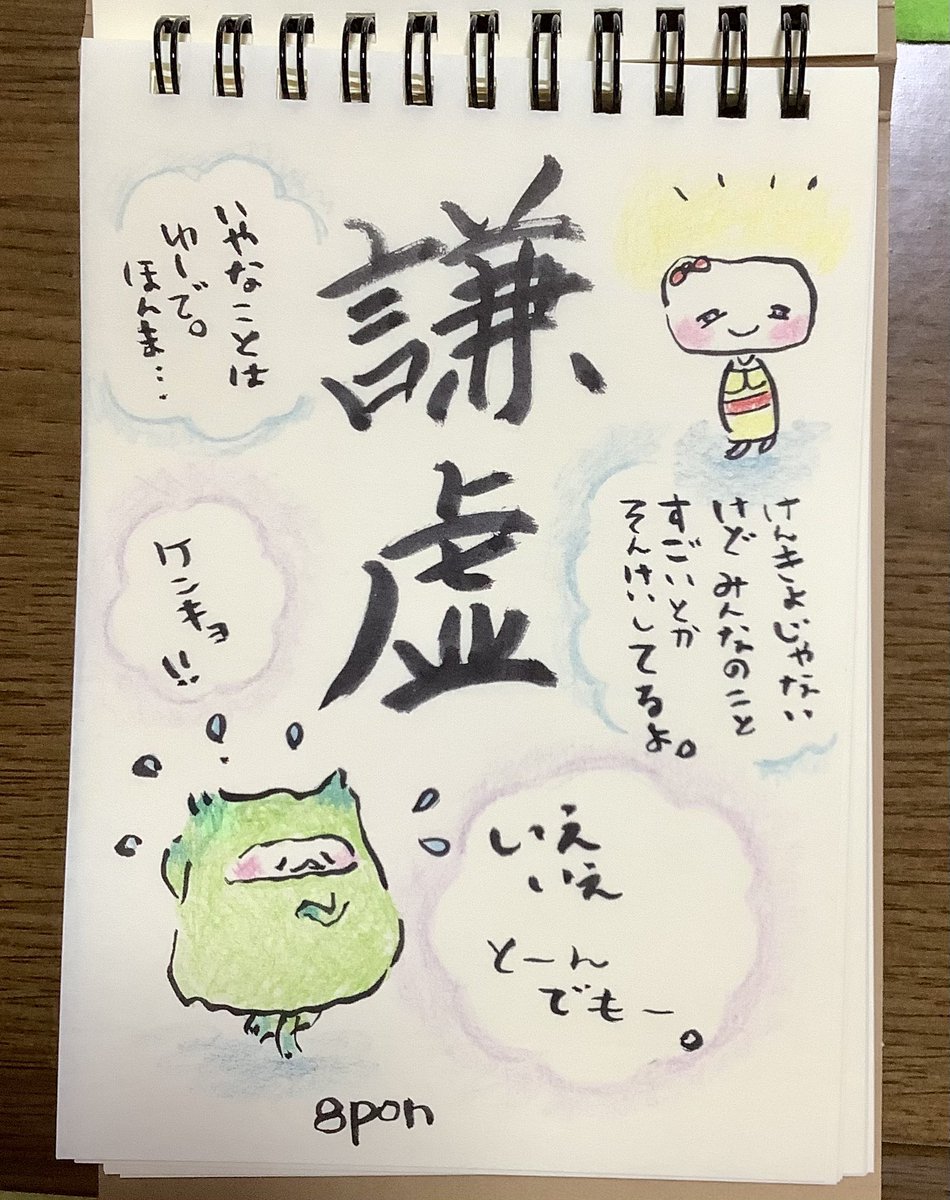 謙虚
いやなことは
ゆーで。
ほんま…
けんきよじゃない
けど みんなのこと
すごいとか
そんけいしてるよ。
ケンキョ!!
いえ
いえ
とーん
でもー。
8pon